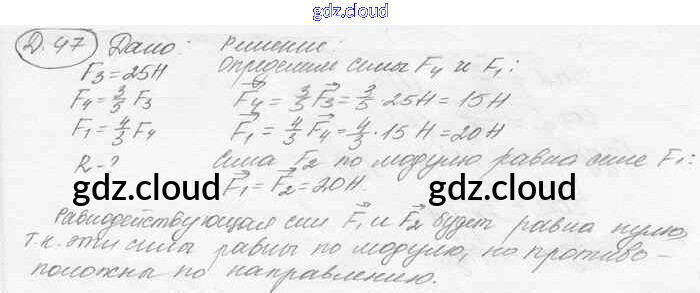 gdz.cloud
Д. 47 Дано: Решение:
F₃=25Н Определим силы F₄ и F₁:
F₄=3/5 F₃ F₄ = 3/5 F₃ = 3/5 · 25Н = 15Н
F₁=4/3 F₄ F₁ = 4/3 F₄ = 4/3 · 15Н = 20Н
R-? Сила F₂ по модулю равна силе F₁:
F₁ = F₂ = 20Н.
gdz.cloud gdz.cloud
Равнодействующая сил F₁ и F₂ будет равна нулю,
т.к. эти силы равны по модулю, но противо-
положны по направлению.
gdz.cloud